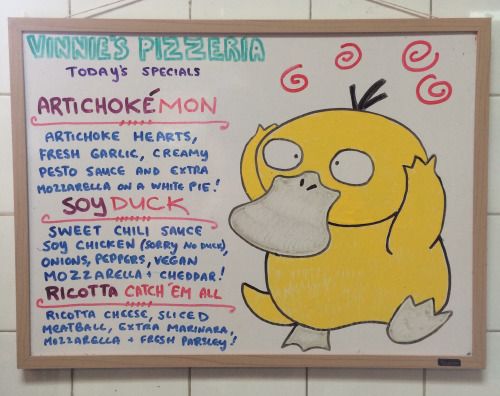 VINNIE'S PIZZERIA
TODAY'S SPECIALS
ARTICHOKÉMON
ARTICHOKE HEARTS,
FRESH GARLIC, CREAMY
PESTO SAUCE AND EXTRA
MOZZARELLA ON A WHITE PIE!
SOYDUCK
SWEET CHILI SAUCE
SOY CHICKEN (SORRY NO DUCK),
ONIONS, PEPPERS, VEGAN
MOZZARELLA + CHEDDAR!
RICOTTA CATCH 'EM ALL
RICOTTA CHEESE, SLICED
MEATBALL, EXTRA MARINARA,
MOZZARELLA + FRESH PARSLEY!